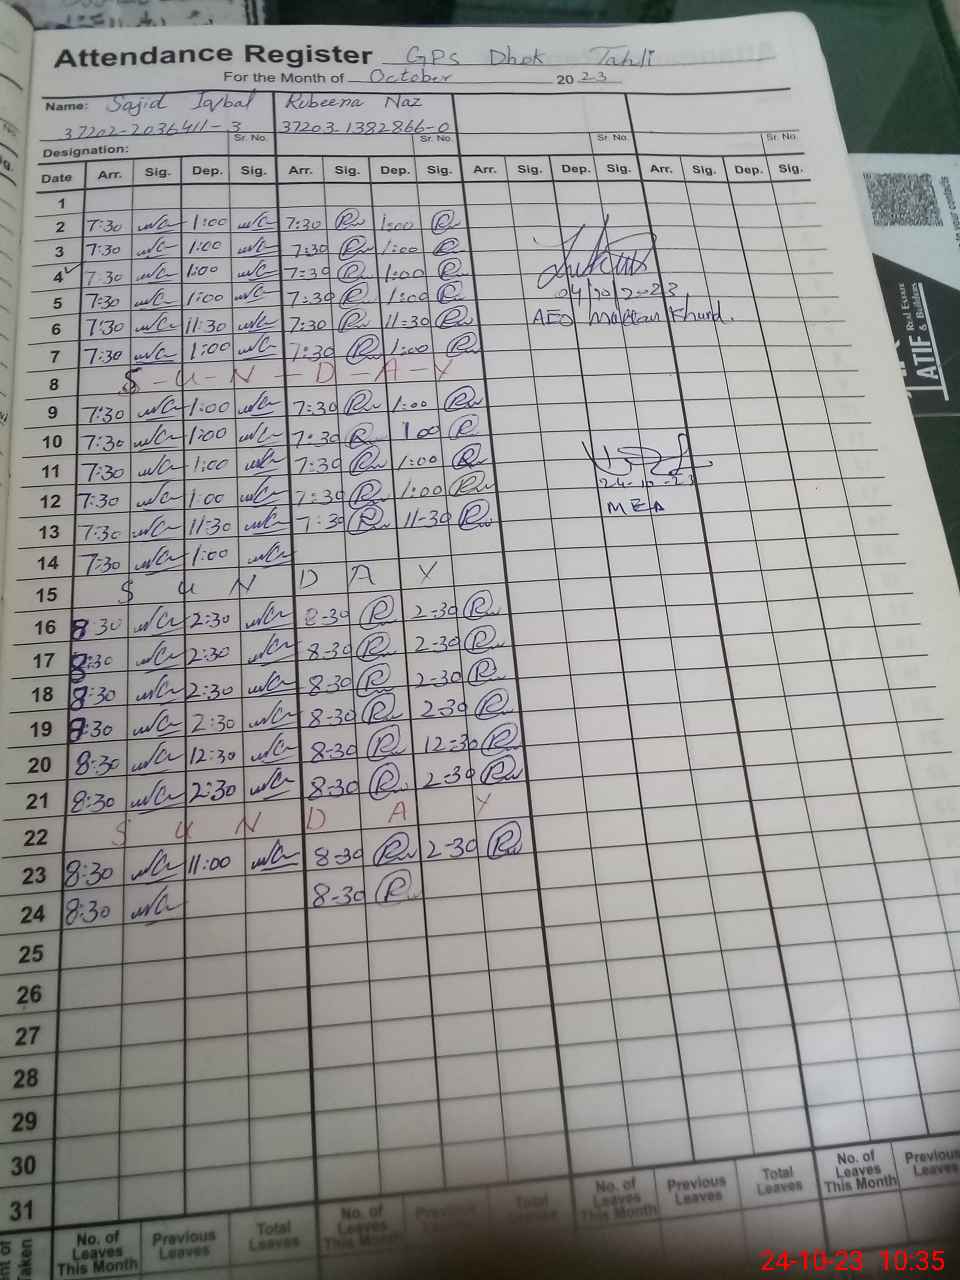 Attendance Register GPS Dhok Tahli
For the Month of October 2023
Name: Sajid Iqbal Rubeena Naz
37202-2036411-3 37203-1382866-0
Sr. No. Sr. No. Sr. No. Sr. No.
Designation:
Date Arr. Sig. Dep. Sig. Arr. Sig. Dep. Sig. Arr. Sig. Dep. Sig. Arr. Sig. Dep. Sig.
1
2 7:30 1:00 7:30 1:00
3 7:30 1:00 7:30 1:00
4 7:30 1:00 7:30 1:00
5 7:30 1:00 7:30 1:00 04/10/2023
6 7:30 11:30 7:30 11:30 AEO Khurd.
7 7:30 1:00 7:30 1:00
8 S-U-N-D-A-Y
9 7:30 1:00 7:30 1:00
10 7:30 1:00 7:30 1 00
11 7:30 1:00 7:30 1:00
12 7:30 1:00 7:30 1:00 24-10-23
13 7:30 11:30 7:30 11-30 MEA
14 7:30 1:00
15 S U N D A Y
16 8:30 2:30 8-30 2-30
17 8:30 2:30 8-30 2-30
18 8:30 2:30 8-30 2-30
19 8:30 2:30 8-30 2-30
20 8:30 12:30 8-30 12-30
21 8:30 2:30 8-30 2-30
22 S U N D A Y
23 8:30 11:00 8-30 2-30
24 8:30 8-30
25
26
27
28
29
30
31
No. of Leaves This Month Previous Leaves Total Leaves No. of Leaves This Month Previous Leaves Total Leaves No. of Leaves This Month Previous Leaves Total Leaves No. of Leaves This Month Previous Leaves
ATIF
Real Estate
& Builders
24-10-23 10:35